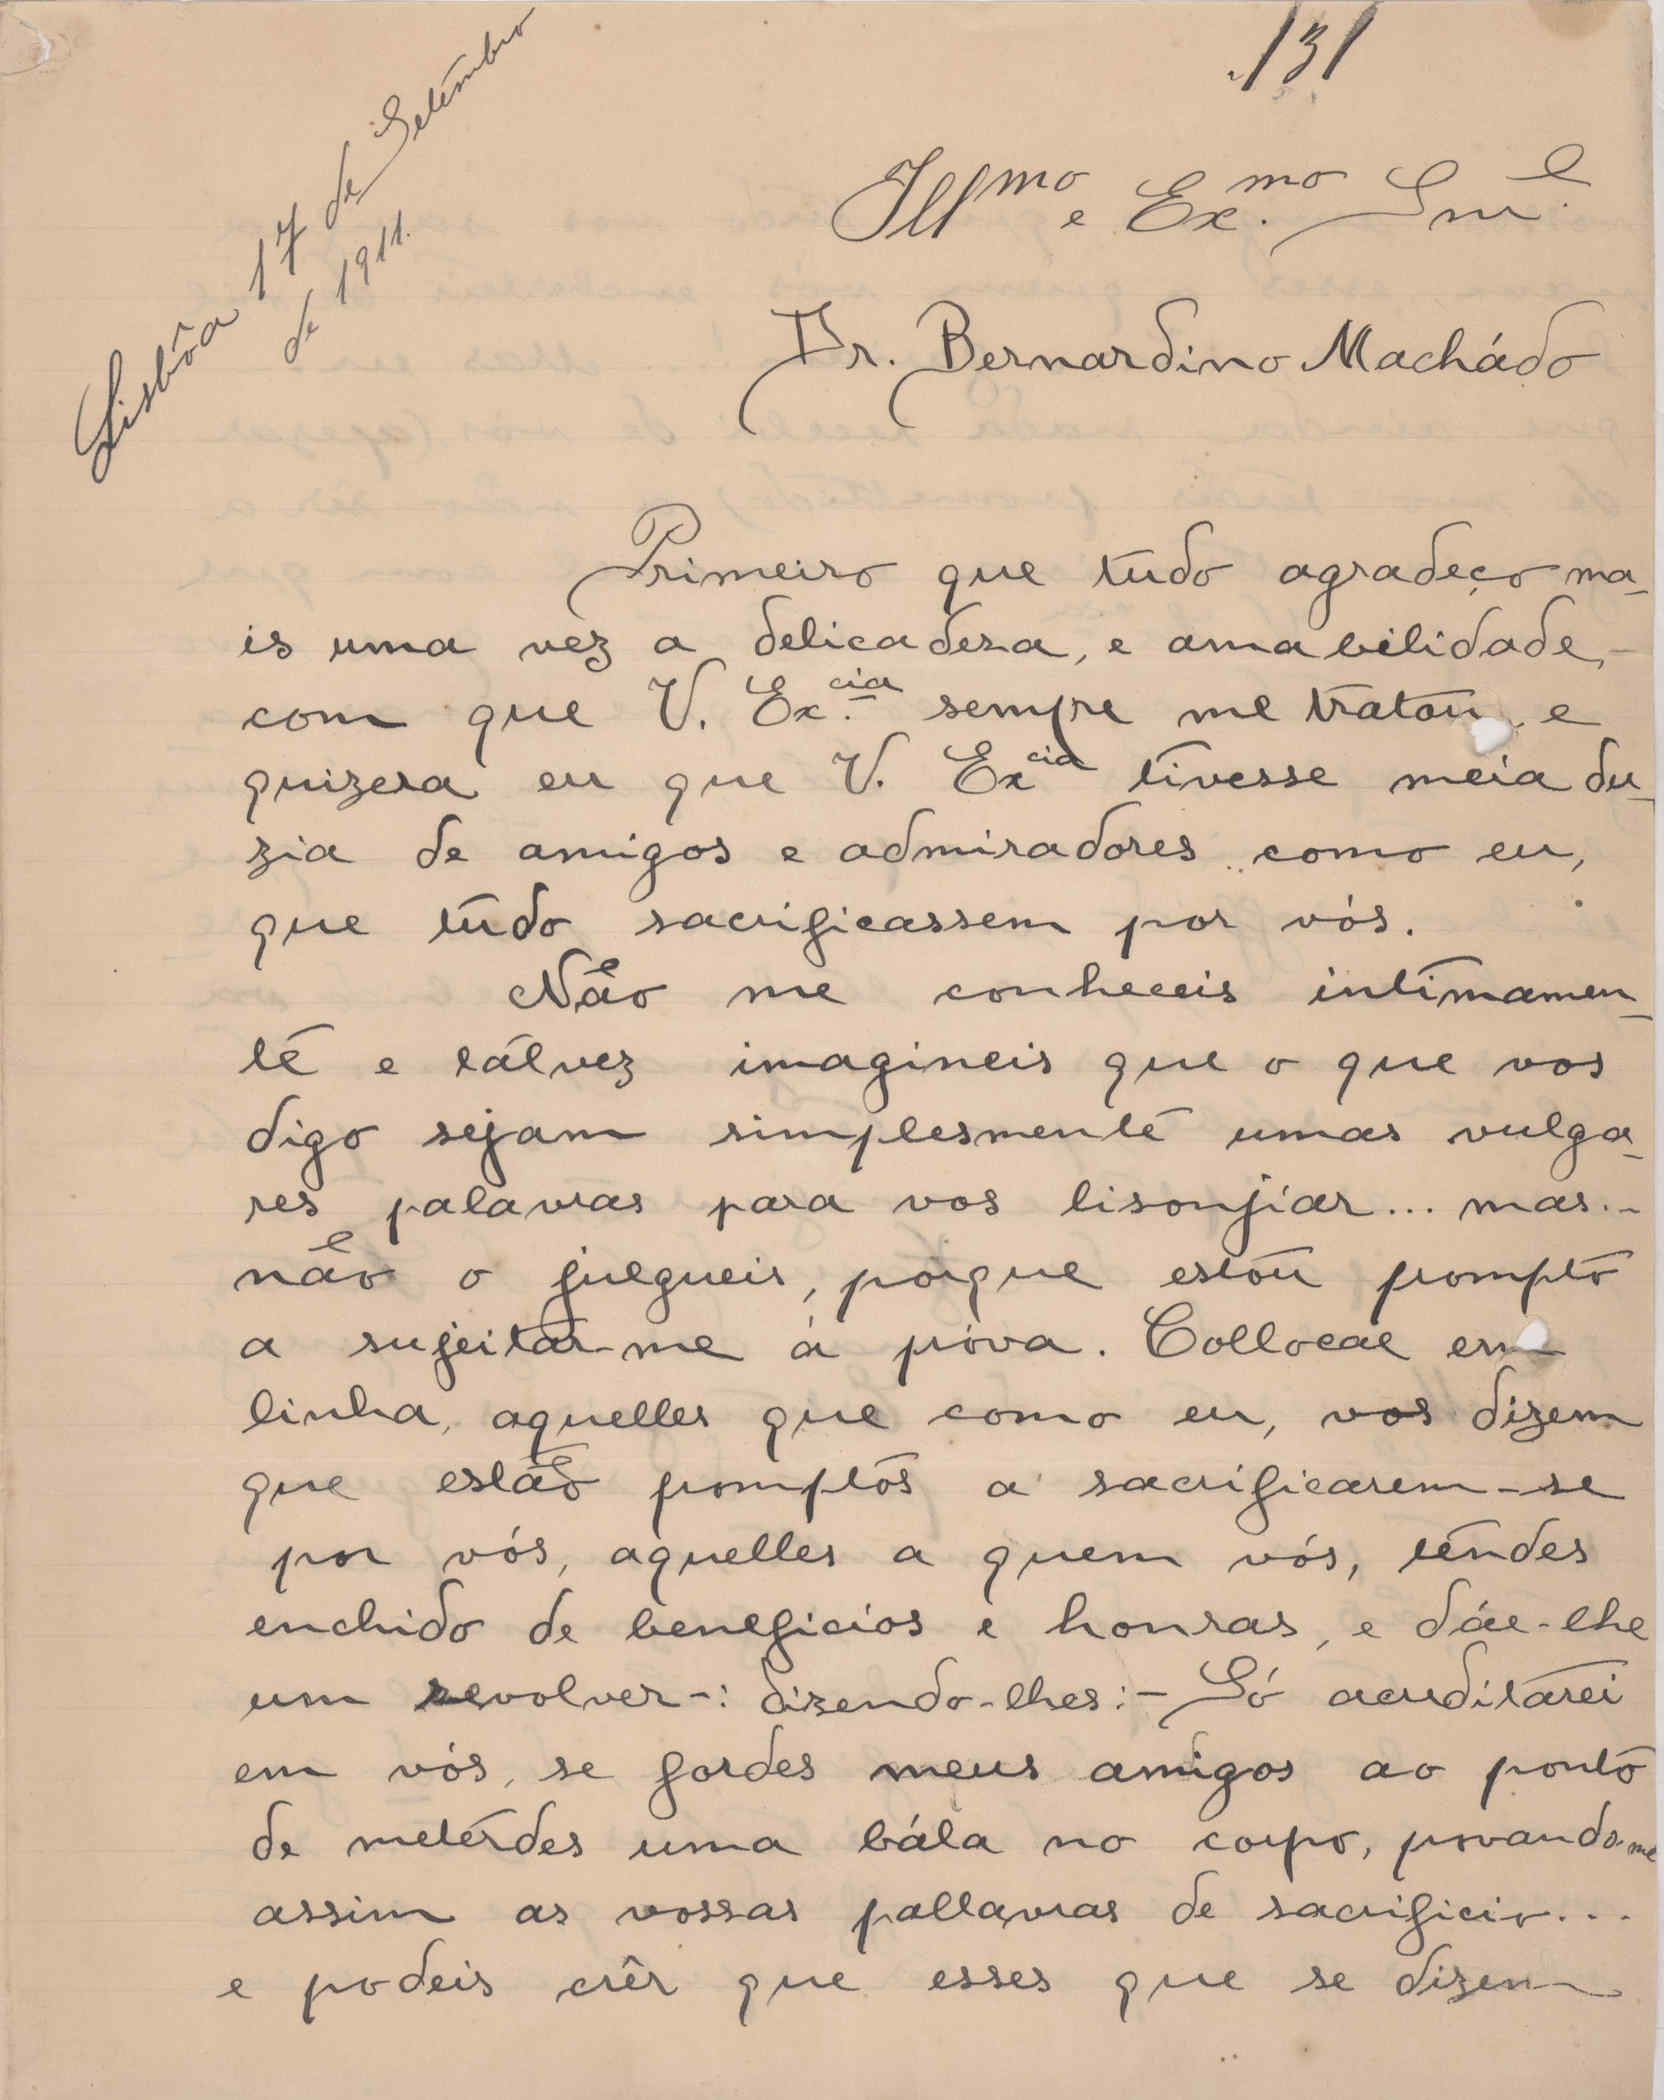 131
Lisbôa 17 de Setembro
de 1911.
Illmo e Ex.mo Snr.
Dr. Bernardino Machádo
Primeiro que tudo agradeço ma-
is uma vez a delicadesa, e amabilidade,
com que V. Ex.cia sempre me tratou, e
quizera eu que V. Excia tivesse meia du-
zia de amigos e admiradores como eu,
que tudo sacrificassem por vós.
Não me conheceis intimamen-
te e tálvez imagineis que o que vos
digo sejam simplesmente umas vulga-
res palavras para vos lisonjiar... mas..
não o julgueis, porque estou prompto
a sujeitar-me á próva. Collocae em
linha, aquelles que como eu, vos dizem
que estão promptos a sacrificarem-se
por vós, aquelles a quem vós, tendes
enchido de beneficios e honras, e dáe-lhe
um revolver-: dizendo-lhes:- Só acreditarei
em vós, se fordes meus amigos ao ponto
de metérdes uma bála no corpo, provando-me
assim as vossas pallavras de sacrificio...
e podeis crêr que esses que se dizem